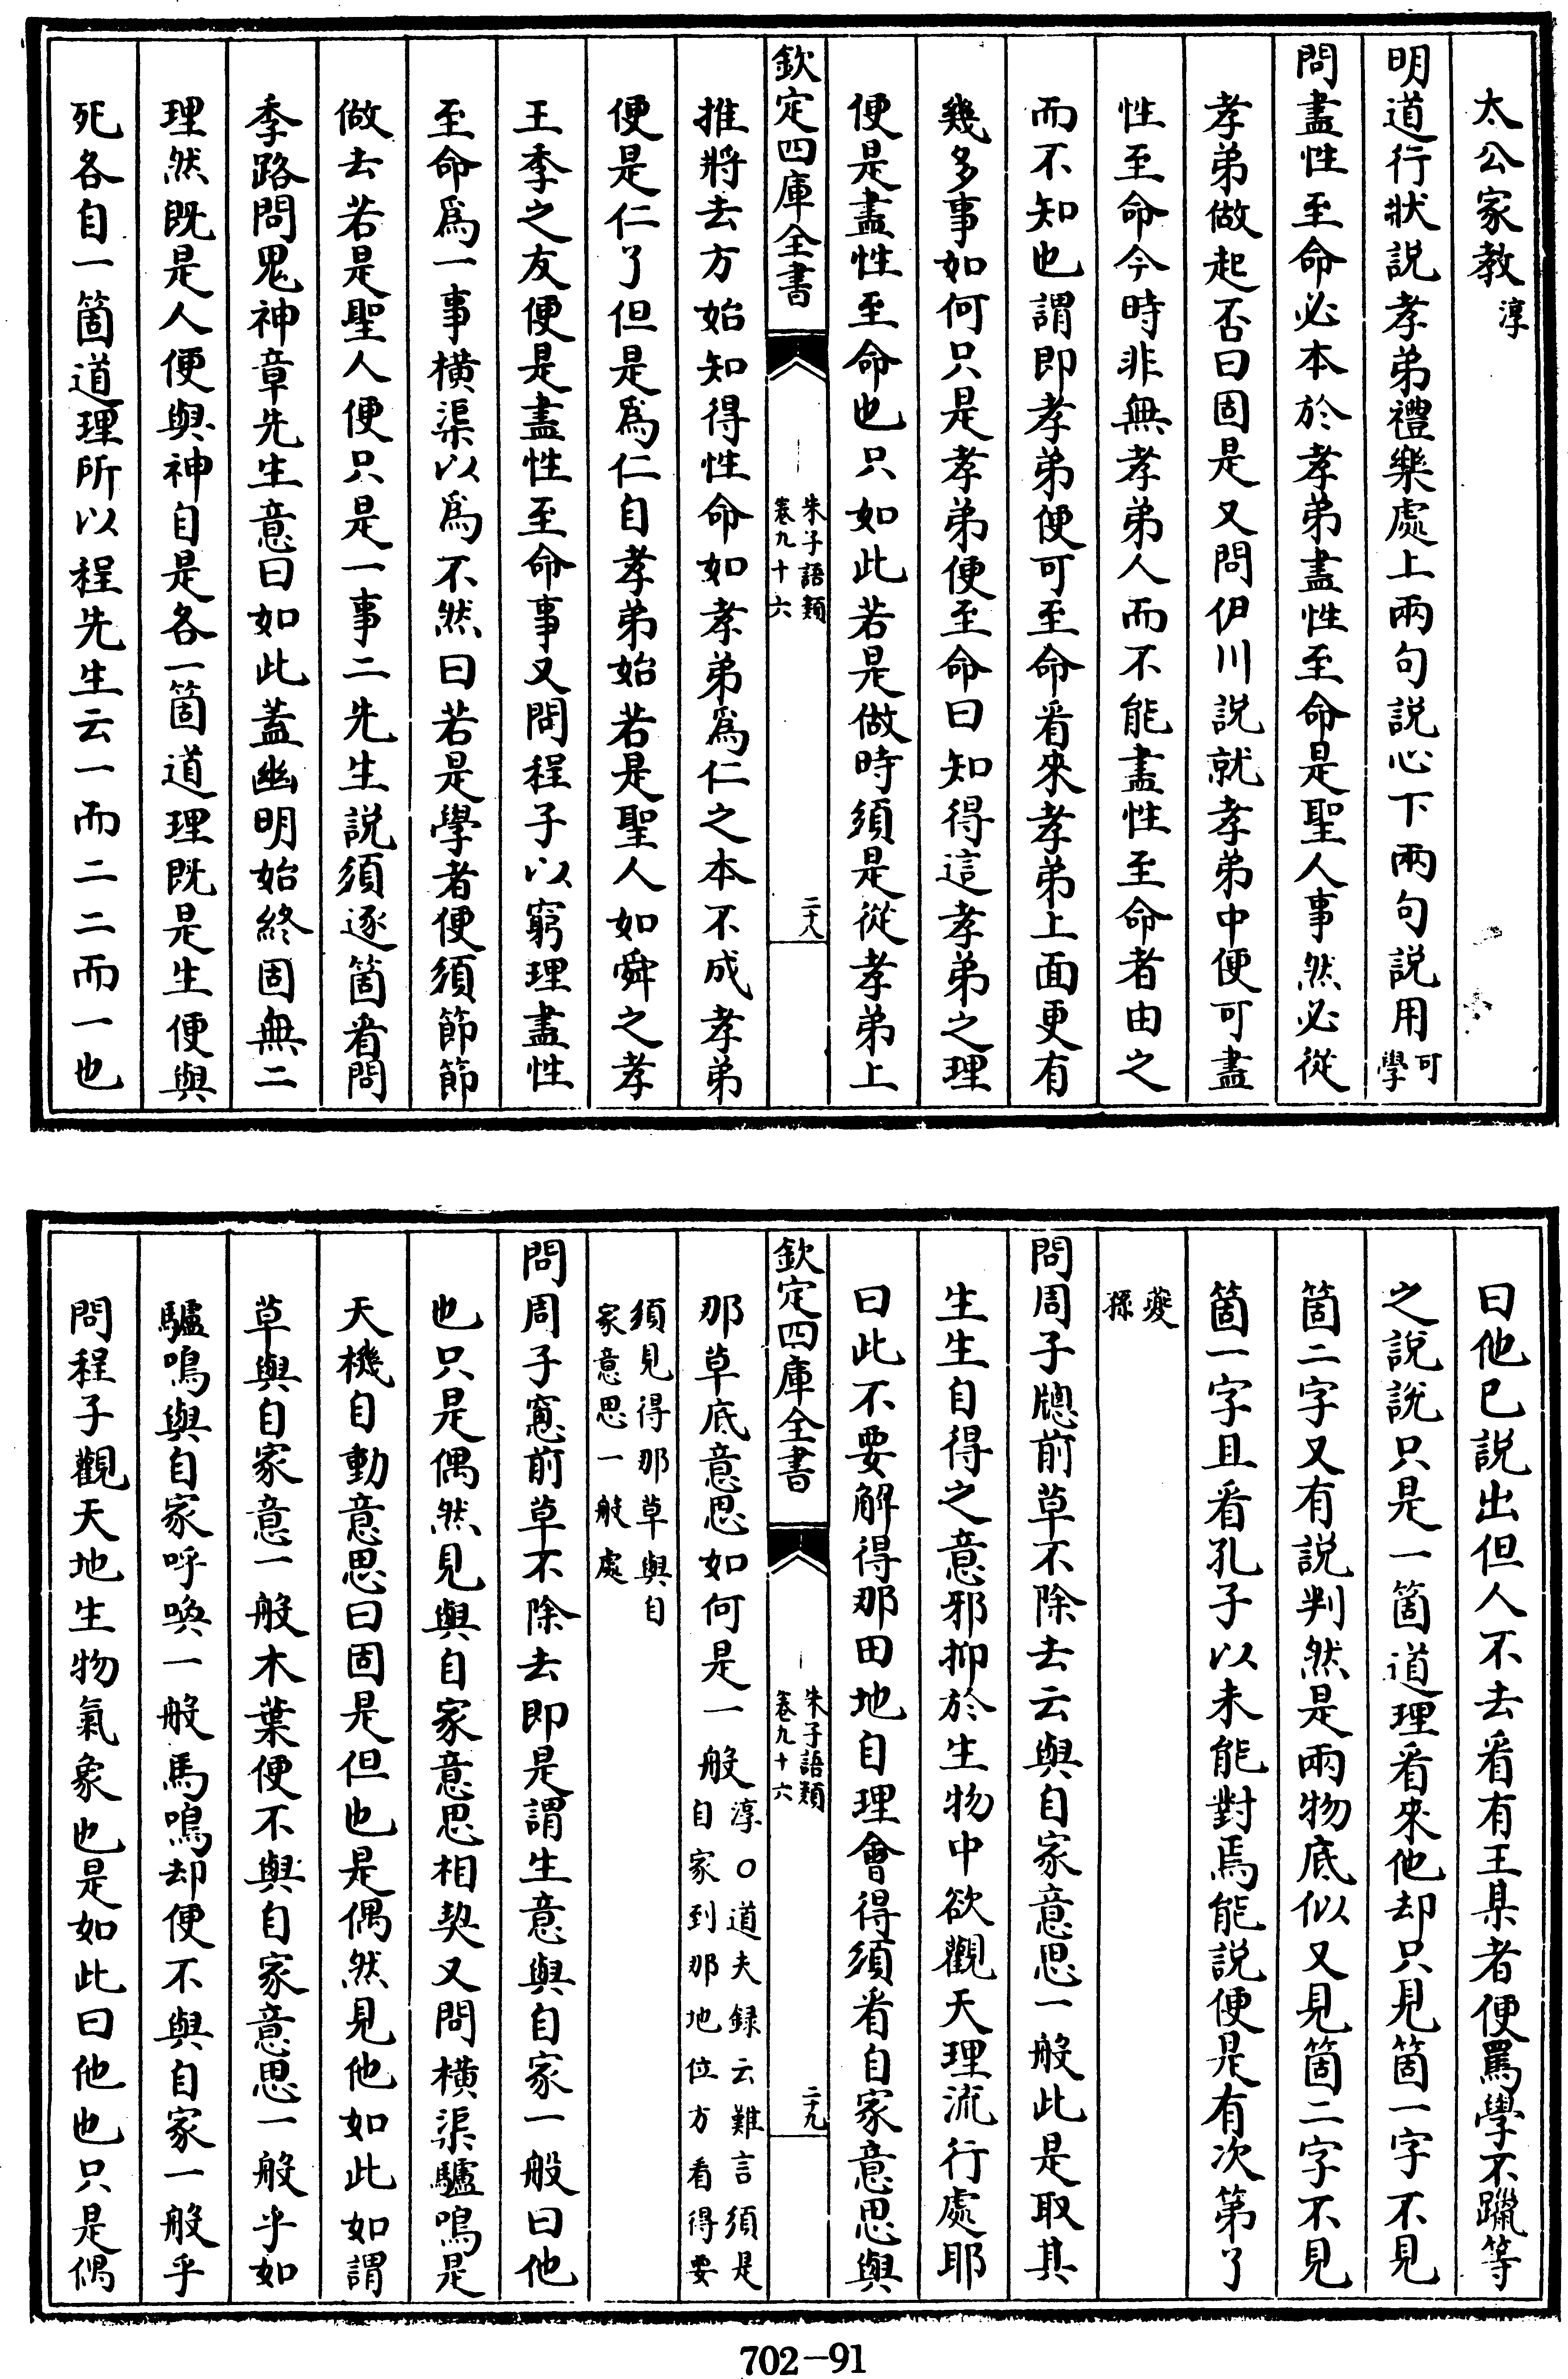 太公家教淳
明道行狀説孝弟禮樂處上兩句説心下兩句説用可學
問盡性至命必本於孝弟盡性至命是聖人事然必從
孝弟做起否曰固是又問伊川説就孝弟中便可盡
性至命今時非無孝弟人而不能盡性至命者由之
而不知也謂即孝弟便可至命看來孝弟上面更有
幾多事如何只是孝弟便至命曰知得這孝弟之理
便是盡性至命也只如此若是做時須是從孝弟上
欽定四庫全書 朱子語類卷九十六 二十八
推將去方始知得性命如孝弟爲仁之本不成孝弟
便是仁了但是爲仁自孝弟始若是聖人如舜之孝
王季之友便是盡性至命事又問程子以窮理盡性
至命爲一事橫渠以爲不然曰若是學者便須節節
做去若是聖人便只是一事二先生説須逐箇看問
季路問鬼神章先生意曰如此蓋幽明始終固無二
理然既是人便與神自是各一箇道理既是生便與
死各自一箇道理所以程先生云一而二二而一也
曰他已説出但人不去看有王某者便罵學不躐等
之說說只是一箇道理看來他却只見箇一字不見
箇二字又有説判然是兩物底似又見箇二字不見
箇一字且看孔子以未能對焉能説便是有次第了
䕫孫
問周子牕前草不除去云與自家意思一般此是取其
生生自得之意邪抑於生物中欲觀天理流行處耶
曰此不要解得那田地自理會得須看自家意思與
欽定四庫全書 朱子語類卷九十六 二十九
那草底意思如何是一般淳○道夫録云難言須是自家到那地位方看得要
須見得那草與自家意思一般處
問周子窻前草不除去即是謂生意與自家一般曰他
也只是偶然見與自家意思相契又問橫渠驢鳴是
天機自動意思曰固是但也是偶然見他如此如謂
草與自家意一般木葉便不與自家意思一般乎如
驢鳴與自家呼喚一般馬鳴却便不與自家一般乎
問程子觀天地生物氣象也是如此曰他也只是偶
702-91